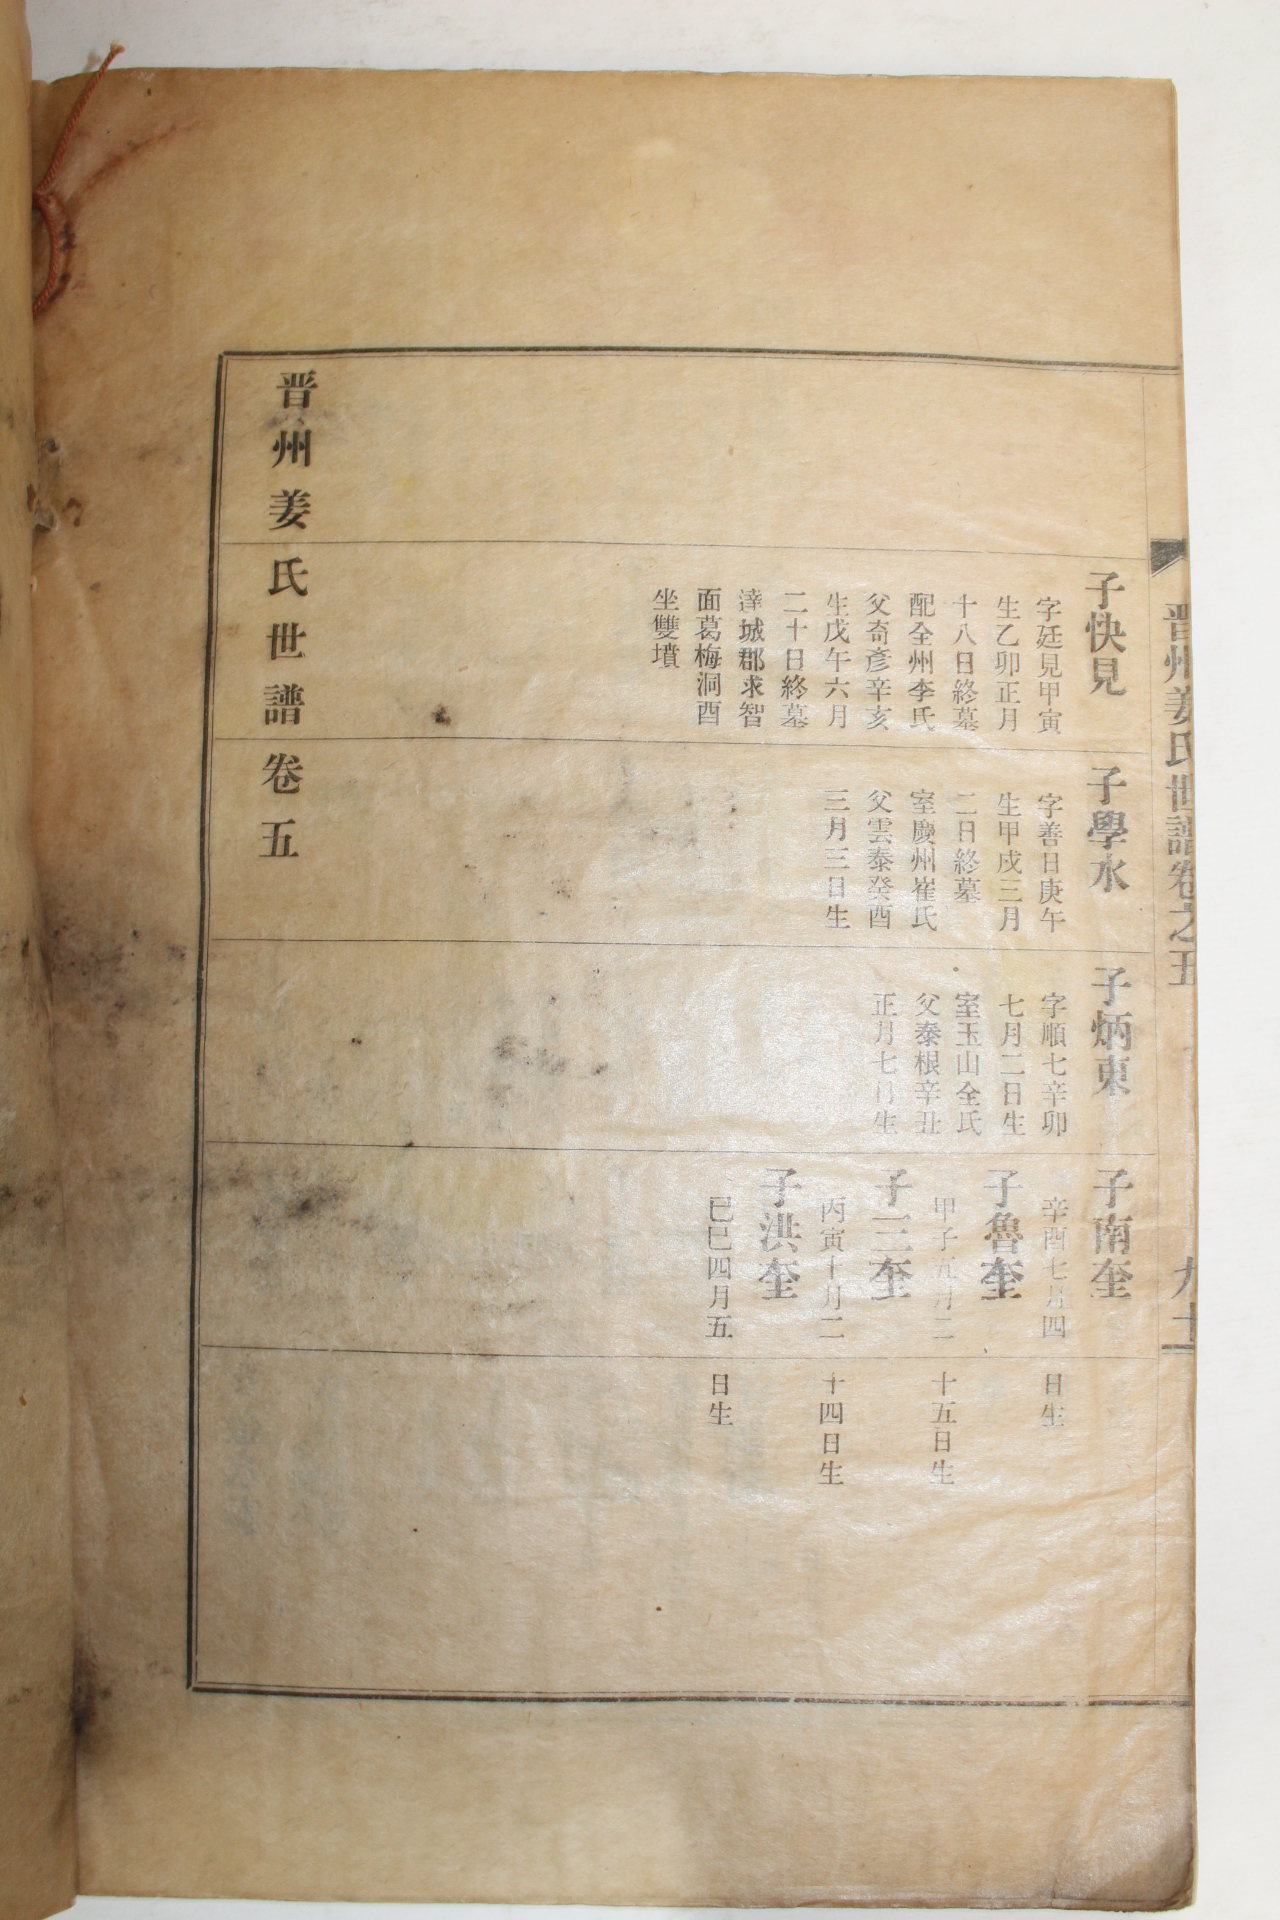 晋州姜氏世譜卷之五
九十一
子快見
字廷見甲寅
生乙卯正月
十八日終墓
配全州李氏
父奇彥辛亥
生戊午六月
二十日終墓
達城郡求智
面葛梅洞酉
坐雙墳
子學水
字善日庚午
生甲戌三月
二日終墓
室慶州崔氏
父雲泰癸酉
三月三日生
子炳東
字順七辛卯
七月二日生
室玉山全氏
父泰根辛丑
正月七日生
子南奎
辛酉七月四
日生
子魯奎
甲子五月二
十五日生
子三奎
丙寅十月二
十四日生
子洪奎
己巳四月五
日生
晋州姜氏世譜卷五